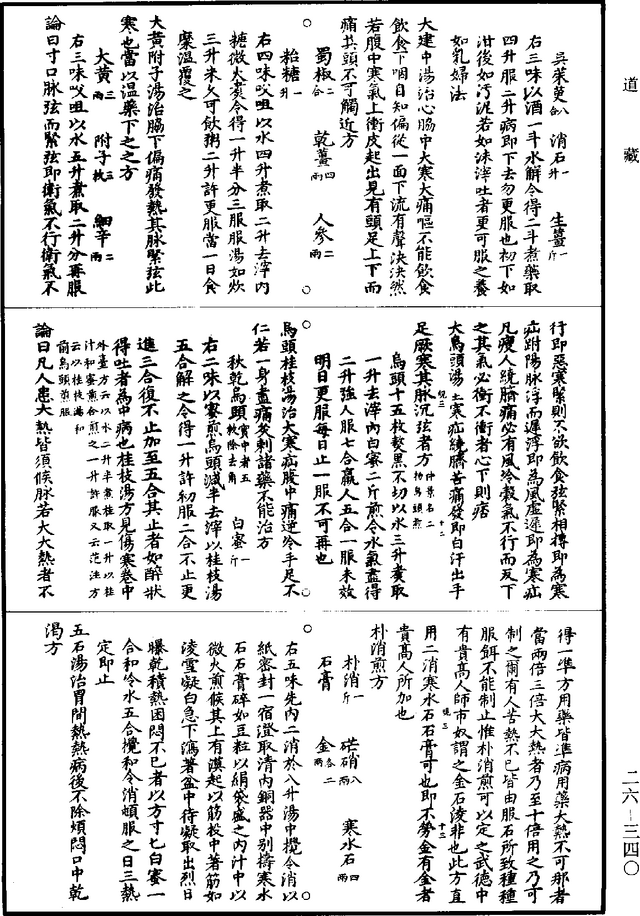 道藏
吳茱萸八合 消石一升 生薑一斤
右三味以酒一斗水解令得二斗煮藥取
四升服二升病即下去勿更服也初下如
泔後如污泥若如沫滓吐者更可服之養
如乳婦法
大建中湯治心脇中大寒大痛嘔不能飲食
飲食下咽自知偏從一面下流有聲決決然
若腹中寒氣上衝皮起出見有頭足上下而
痛其頭不可觸近方
蜀椒二合 乾薑四兩 人參二兩
飴糖一升
右四味㕮咀以水四升煮取二升去滓內
糖微火煮令得一升半分三服服湯如炊
三升米久可飲粥二升許更服當一日食
糜溫覆之
大黃附子湯治脇下偏痛發熱其脉緊弦此
寒也當以溫藥下之之方
大黃三兩 附子三枚 細辛二兩
右三味㕮咀以水五升煮取二升分再服
論曰寸口脉弦而緊弦即衛氣不行衛氣不
行即惡寒緊則不欲飲食弦緊相搏即為寒
疝趺陽脉浮而遲浮即為風虛遲即為寒疝
凡瘦人繞臍痛必有風冷穀氣不行而反下
之其氣必衝不衝者心下則痞
大烏頭湯主寒疝繞臍苦痛發即白汗出手
足厥寒其脉沉弦者方
烏頭十五枚熬黑不切以水三升煮取
一升去滓內白蜜二斤煎令水氣盡得
二升強人服七合羸人五合一服未效
明日更服每日止一服不可再也
烏頭桂枝湯治大寒疝腹中痛逆冷手足不
仁若一身盡痛灸刺諸藥不能治方
秋乾烏頭實中者五枚除去角 白蜜一斤
右二味以蜜煎烏頭減半去滓以桂枝湯
五合解之令得一升許初服二合不止更
進三合復不止加至五合其止者如醉狀
得吐者為中病也桂枝湯方見傷寒卷中
外臺方云以水二升半煮桂取一升以桂
汁和蜜煎合煎之一升許服又云范汪方
云以桂枝湯和
前烏頭煎服
論曰凡人患大熱皆須候脉若大大熱者不
得一準方用藥皆準病用藥大熱不可那者
當兩倍三倍大大熱者乃至十倍用之乃可
制之爾有人苦熱不已皆由服石所致種種
服餌不能制止惟朴消煎可以定之武德中
有貴高人師市奴謂之金石凌非也此方直
用二消寒水石石膏可也即不勞金有金者
貴高人所加也
朴消煎方
朴消一斤 芒硝八兩 寒水石四兩
石膏 金各二兩
右五味先內二消於八升湯中攪令消以
紙密封一宿澄取清內銅器中別擣寒水
石石膏碎如豆粒以絹袋盛之內汁中以
微火煎候其上有漠起以筋投中著筋如
淩雪凝白急下瀉著盆中待凝取出烈日
曝乾積熱困悶不已者以方寸匕白蜜一
合和冷水五合攪和令消頓服之日三熱
定即止
五石湯治胃間熱熱病後不除煩悶口中乾
渴方
二六—三四〇